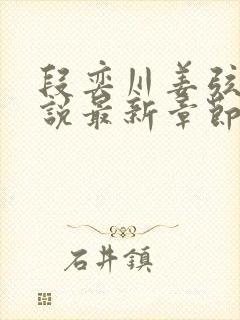 段奕川姜弦
說最新章節
石井鎮